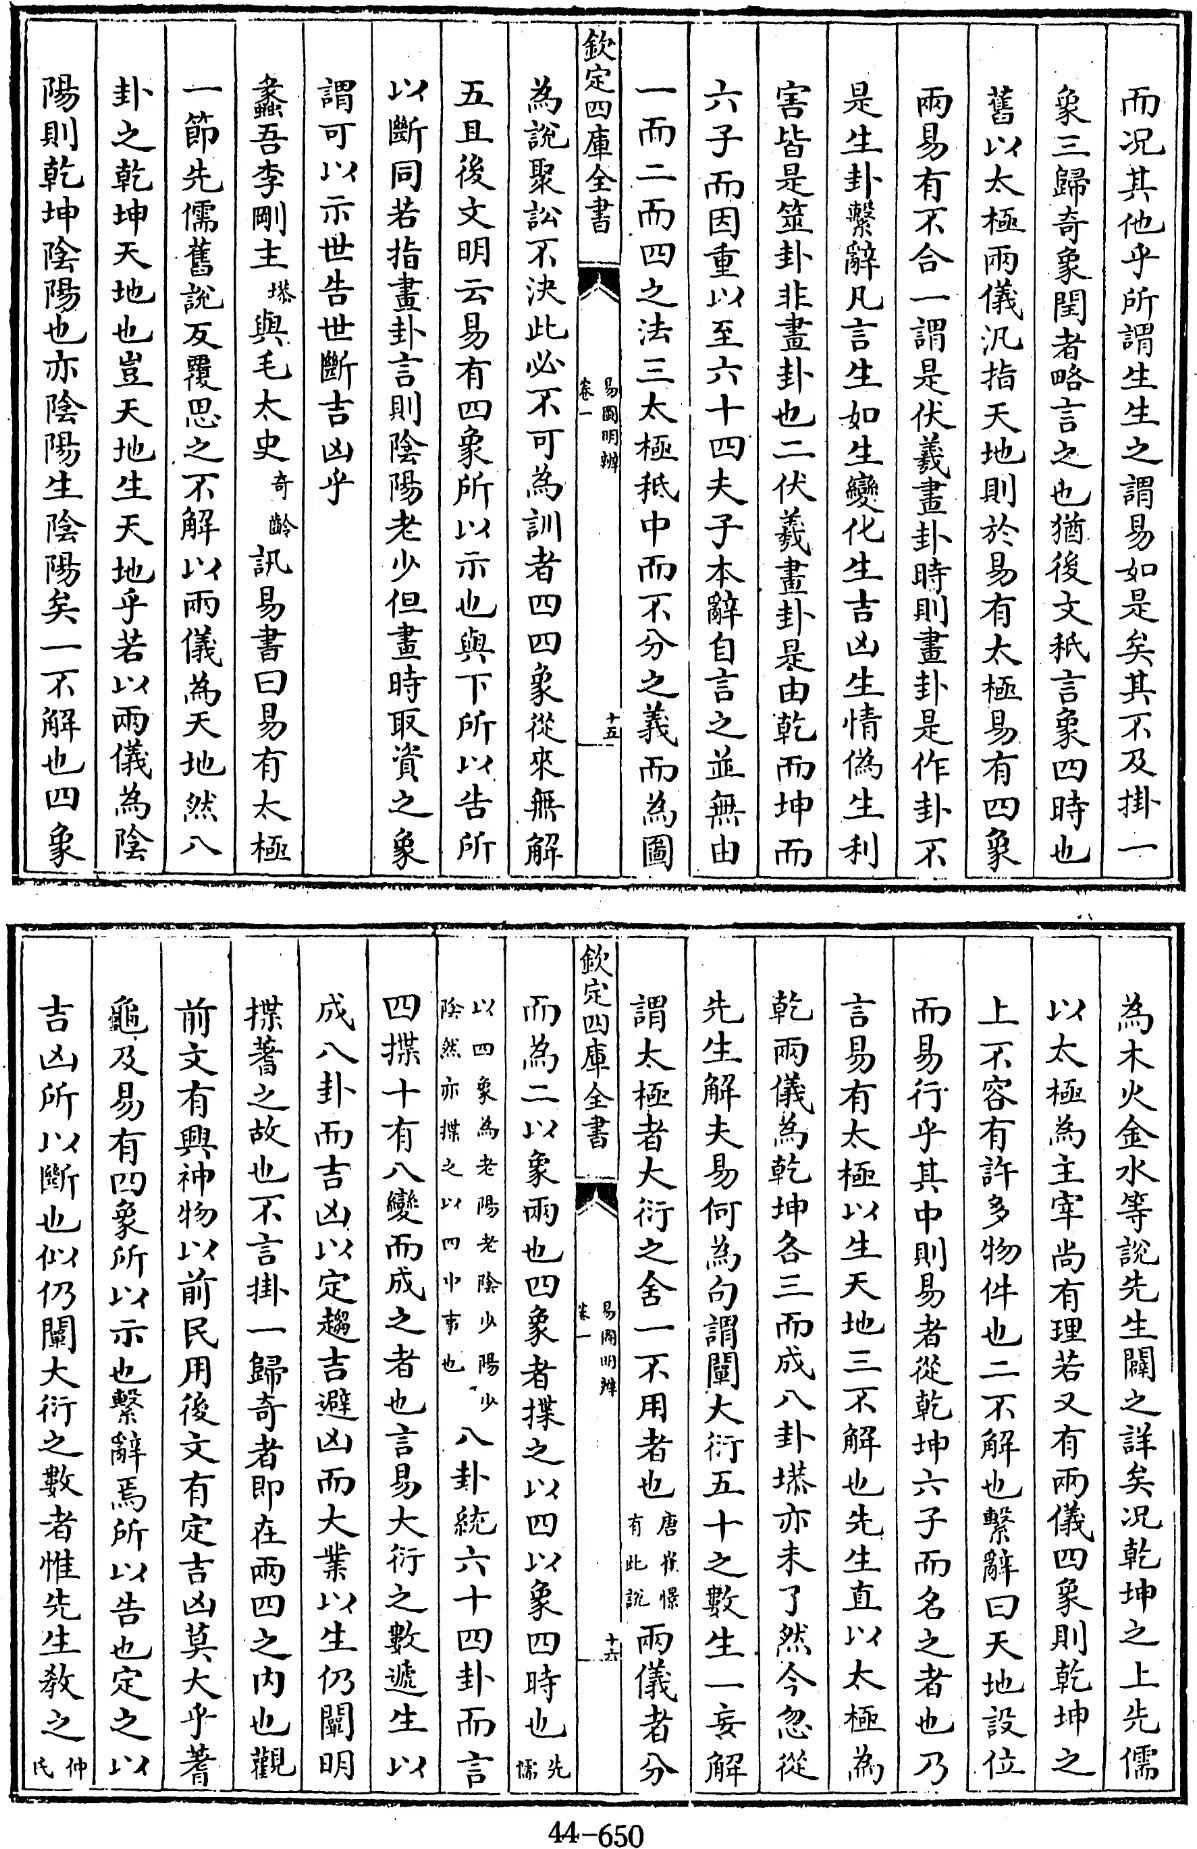 而況其他乎所謂生生之謂易如是矣其不及掛一
象三歸奇象閏者略言之也猶後文秖言象四時也
舊以太極兩儀汎指天地則於易有太極易有四象
兩易有不合一謂是伏羲畫卦時則畫卦是作卦不
是生卦繫辭凡言生如生變化生吉凶生情偽生利
害皆是筮卦非畫卦也二伏羲畫卦是由乾而坤而
六子而因重以至六十四夫子本辭自言之並無由
一而二而四之法三太極秖中而不分之義而為圖
欽定四庫全書
易圖明辨
卷一
十五
為說聚訟不決此必不可為訓者四四象從來無解
五且後文明云易有四象所以示也與下所以告所
以斷同若指畫卦言則陰陽老少但畫時取資之象
謂可以示世告世斷吉凶乎
蠡吾李剛主塨與毛太史奇齡訊易書曰易有太極
一節先儒舊說反覆思之不解以兩儀為天地然八
卦之乾坤天地也豈天地生天地乎若以兩儀為陰
陽則乾坤陰陽也亦陰陽生陰陽矣一不解也四象
為木火金水等說先生闢之詳矣況乾坤之上先儒
以太極為主宰尚有理若又有兩儀四象則乾坤之
上不容有許多物件也二不解也繫辭曰天地設位
而易行乎其中則易者從乾坤六子而名之者也乃
言易有太極以生天地三不解也先生直以太極為
乾兩儀為乾坤各三而成八卦塨亦未了然今忽從
先生解夫易何為句謂闡大衍五十之數生一妄解
謂太極者大衍之舍一不用者也唐崔憬有此說兩儀者分
欽定四庫全書
易圖明辨
卷一
十六
而為二以象兩也四象者揲之以四以象四時也先儒
以四象為老陽老陰少陽少陰然亦揲之以四中事也八卦統六十四卦而言
四揲十有八變而成之者也言易大衍之數遞生以
成八卦而吉凶以定趨吉避凶而大業以生仍闡明
揲蓍之故也不言掛一歸奇者即在兩四之內也觀
前文有興神物以前民用後文有定吉凶莫大乎蓍
龜及易有四象所以示也繫辭焉所以告也定之以
吉凶所以斷也似仍闡大衍之數者惟先生教之仲氏
44-650